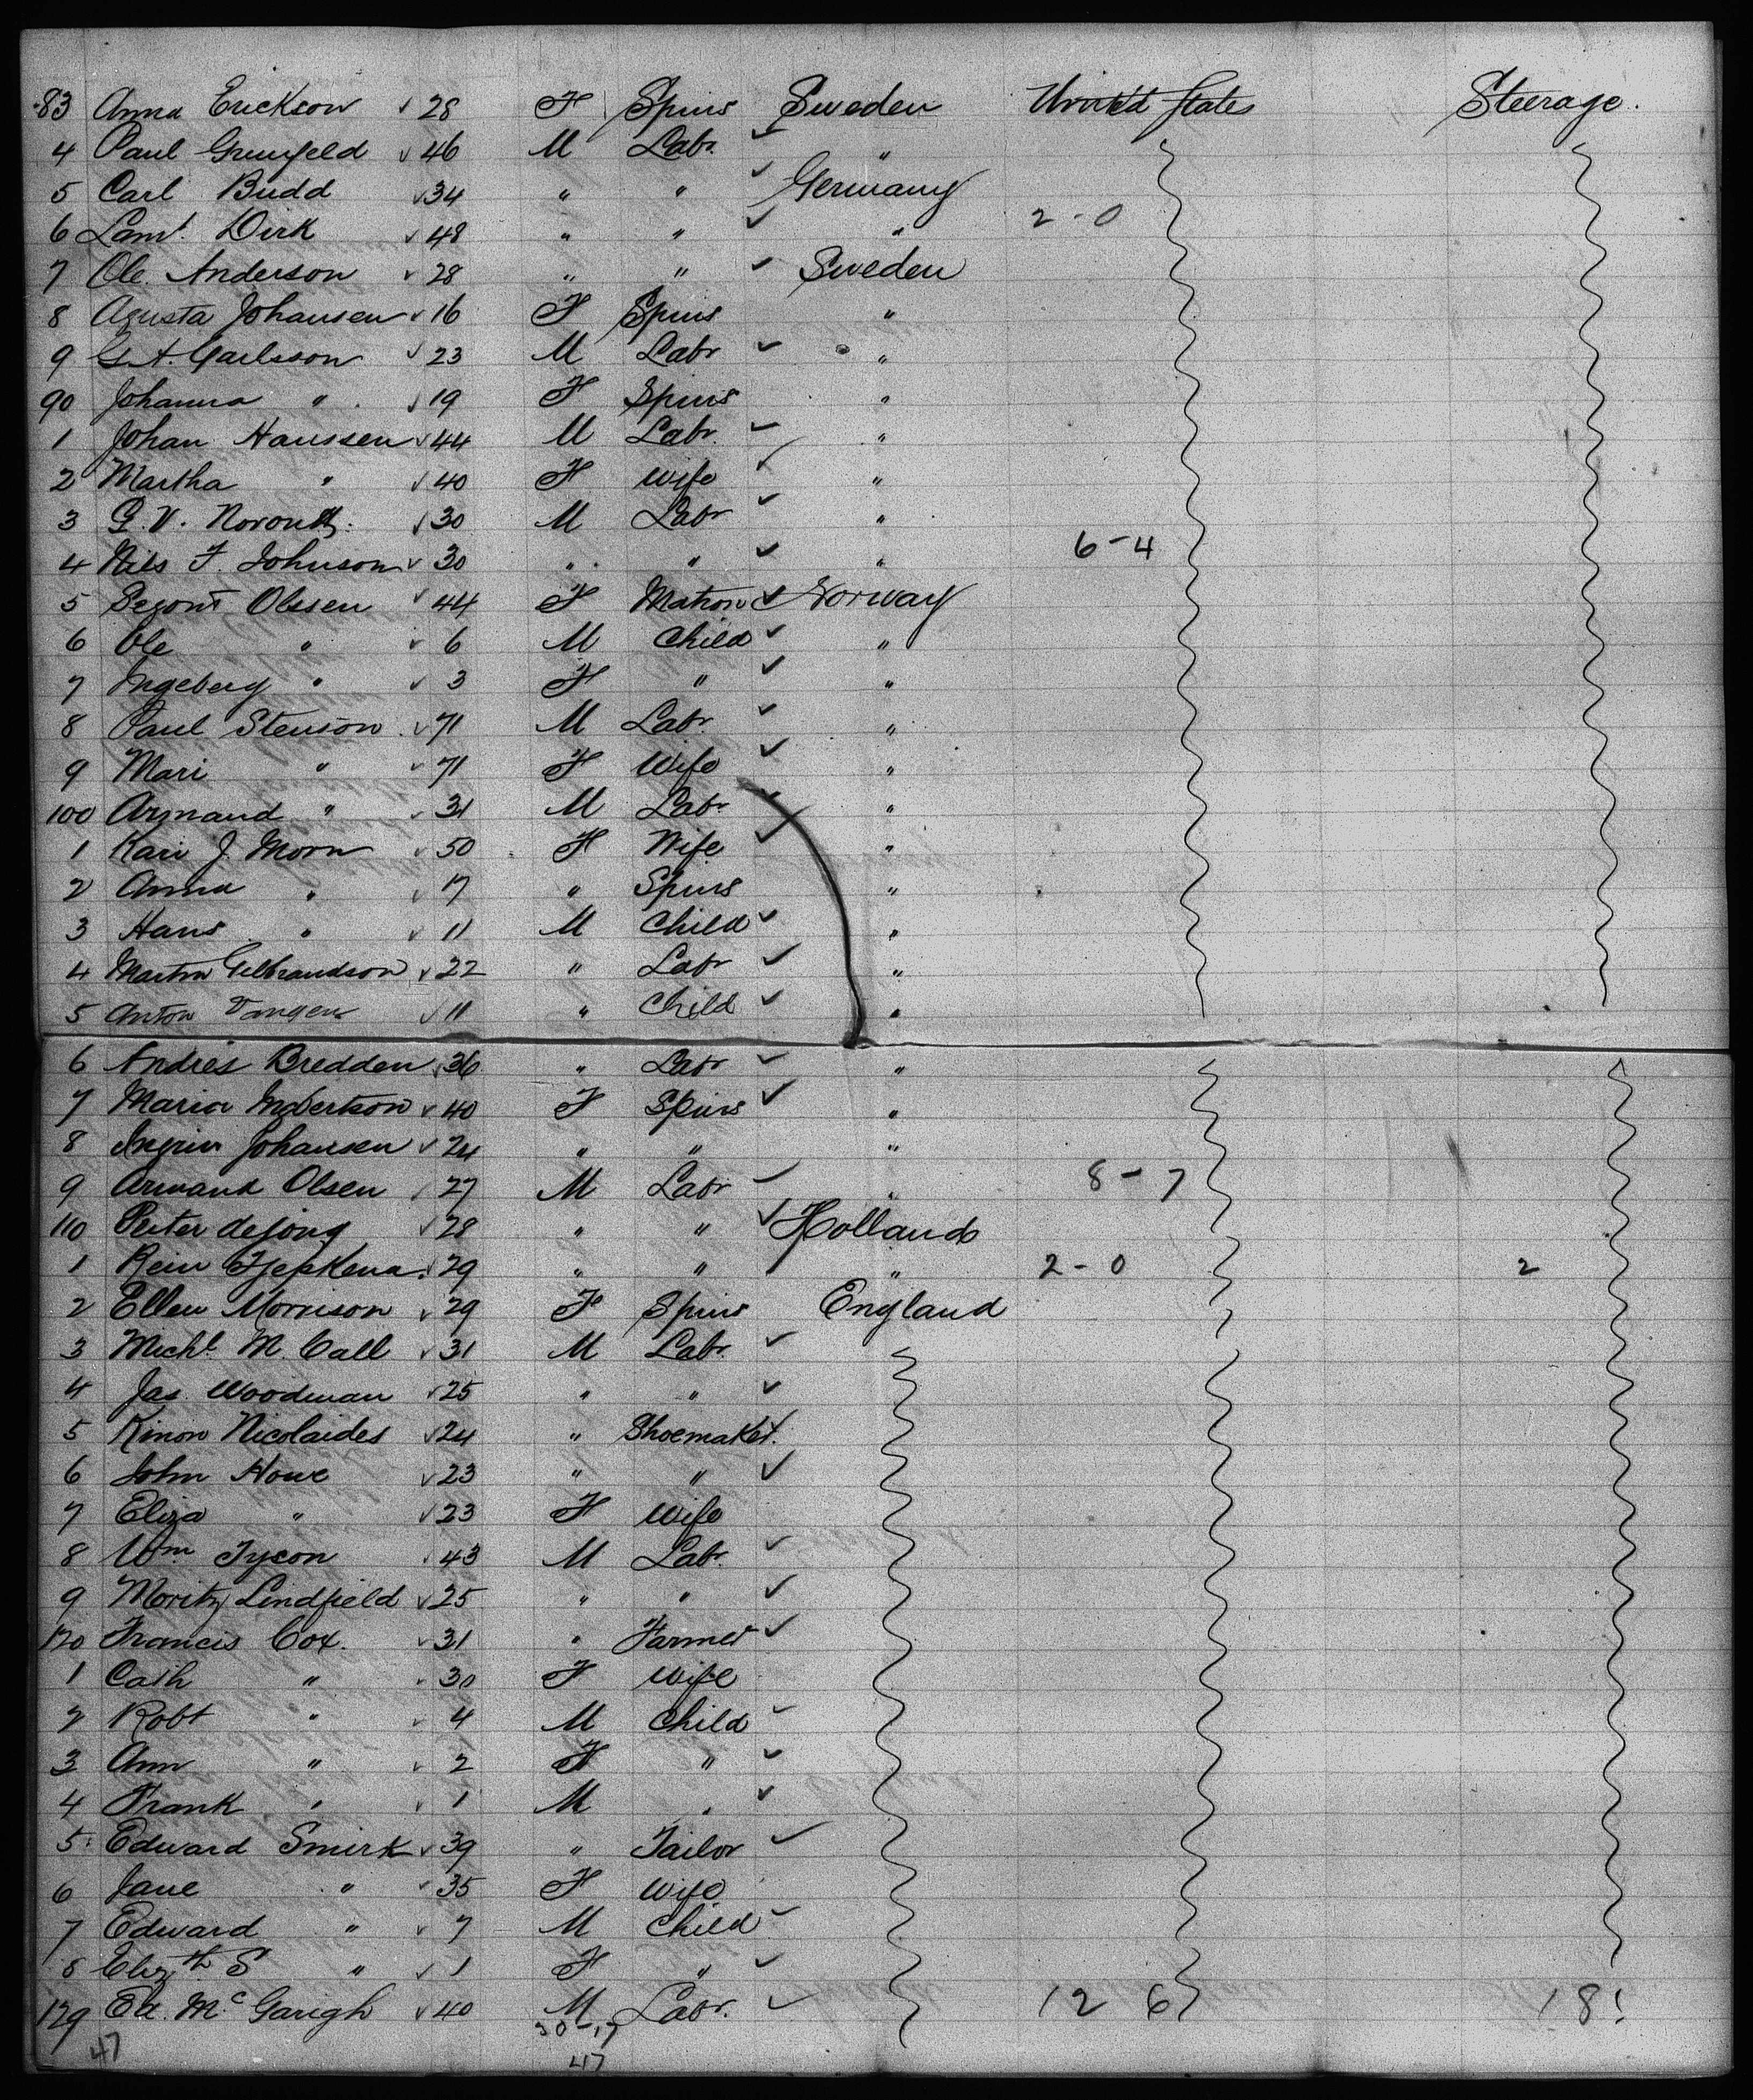 83 Anna Erickson ✓ 28 F Spins Sweden United States Steerage.
4 Paul Grunfeld ✓ 46 M Labr. ✓ "
5 Carl Budd ✓ 34 " " ✓ Germany
6 Lamt. Dirk ✓ 48 " " ✓ " 2-0
7 Ole. Anderson ✓ 28 " " ✓ Sweden
8 Agusta Johansen ✓ 16 F Spins "
9 G.A. Carlsson ✓ 23 M Labr ✓ "
90 Johanna " ✓ 19 F Spins "
1 Johan Hanssen ✓ 44 M Labr. ✓ "
2 Martha " ✓ 40 F Wife ✓ "
3 G.V. ✓ 30 M Labr ✓ "
4 Nils F. Johnson ✓ 30 " " ✓ " 6-4
5 Olssen ✓ 44 F Matron ✓ Norway
6 Ole " ✓ 6 M Child ✓ "
7 Ingeberg " ✓ 3 F " ✓ "
8 Paul Stenson ✓ 71 M Labr. ✓ "
9 Mari " ✓ 71 F Wife ✓ "
100 Armand " ✓ 31 M Labr ✓ "
1 Kari J. Morn ✓ 50 F Wife ✓ "
2 Anna " ✓ 17 " Spins "
3 Hans " ✓ 11 M Child ✓ "
4 Martin Gilbrandson ✓ 22 " Labr ✓ "
5 Anton Tangen ✓ 11 " Child ✓ "
6 Andres Bredden ✓ 36 " Labr ✓ "
7 Maria ✓ 40 F Spins ✓ "
8 Johansen ✓ 24 " " "
9 Armand Olsen ✓ 27 M Labr ✓ " 8-7
110 Peter deJong ✓ 28 " " ✓ Holland
1 Rein Tjepkena ✓ 29 " " ✓ " 2-0 2
2 Ellen Morrison ✓ 29 F Spins England
3 Michl. M. Call ✓ 31 M Labr. ✓
4 Jas. Woodman ✓ 25 " " ✓
5 Kinon Nicolaides ✓ 24 " Shoemaker ✓
6 John Howe ✓ 23 " " ✓
7 Eliza " ✓ 23 F Wife
8 Wm Tycon ✓ 43 M Labr. ✓
9 Moritz Lindfield ✓ 25 " " ✓
120 Francis Cox. ✓ 31 " Farmer ✓
1 Cath " ✓ 30 F Wife
2 Robt " ✓ 4 M Child ✓
3 Ann " ✓ 2 F " ✓
4 Frank " ✓ 1 M " ✓
5 Edward Smirk ✓ 39 " Tailor ✓
6 Jane " ✓ 35 F Wife
7 Edward " ✓ 7 M Child ✓
8 Elizth S " ✓ 1 F " ✓
129 Ed. Mc Garigh ✓ 40 M Labr. ✓ 12 6 18
30-17
47 47